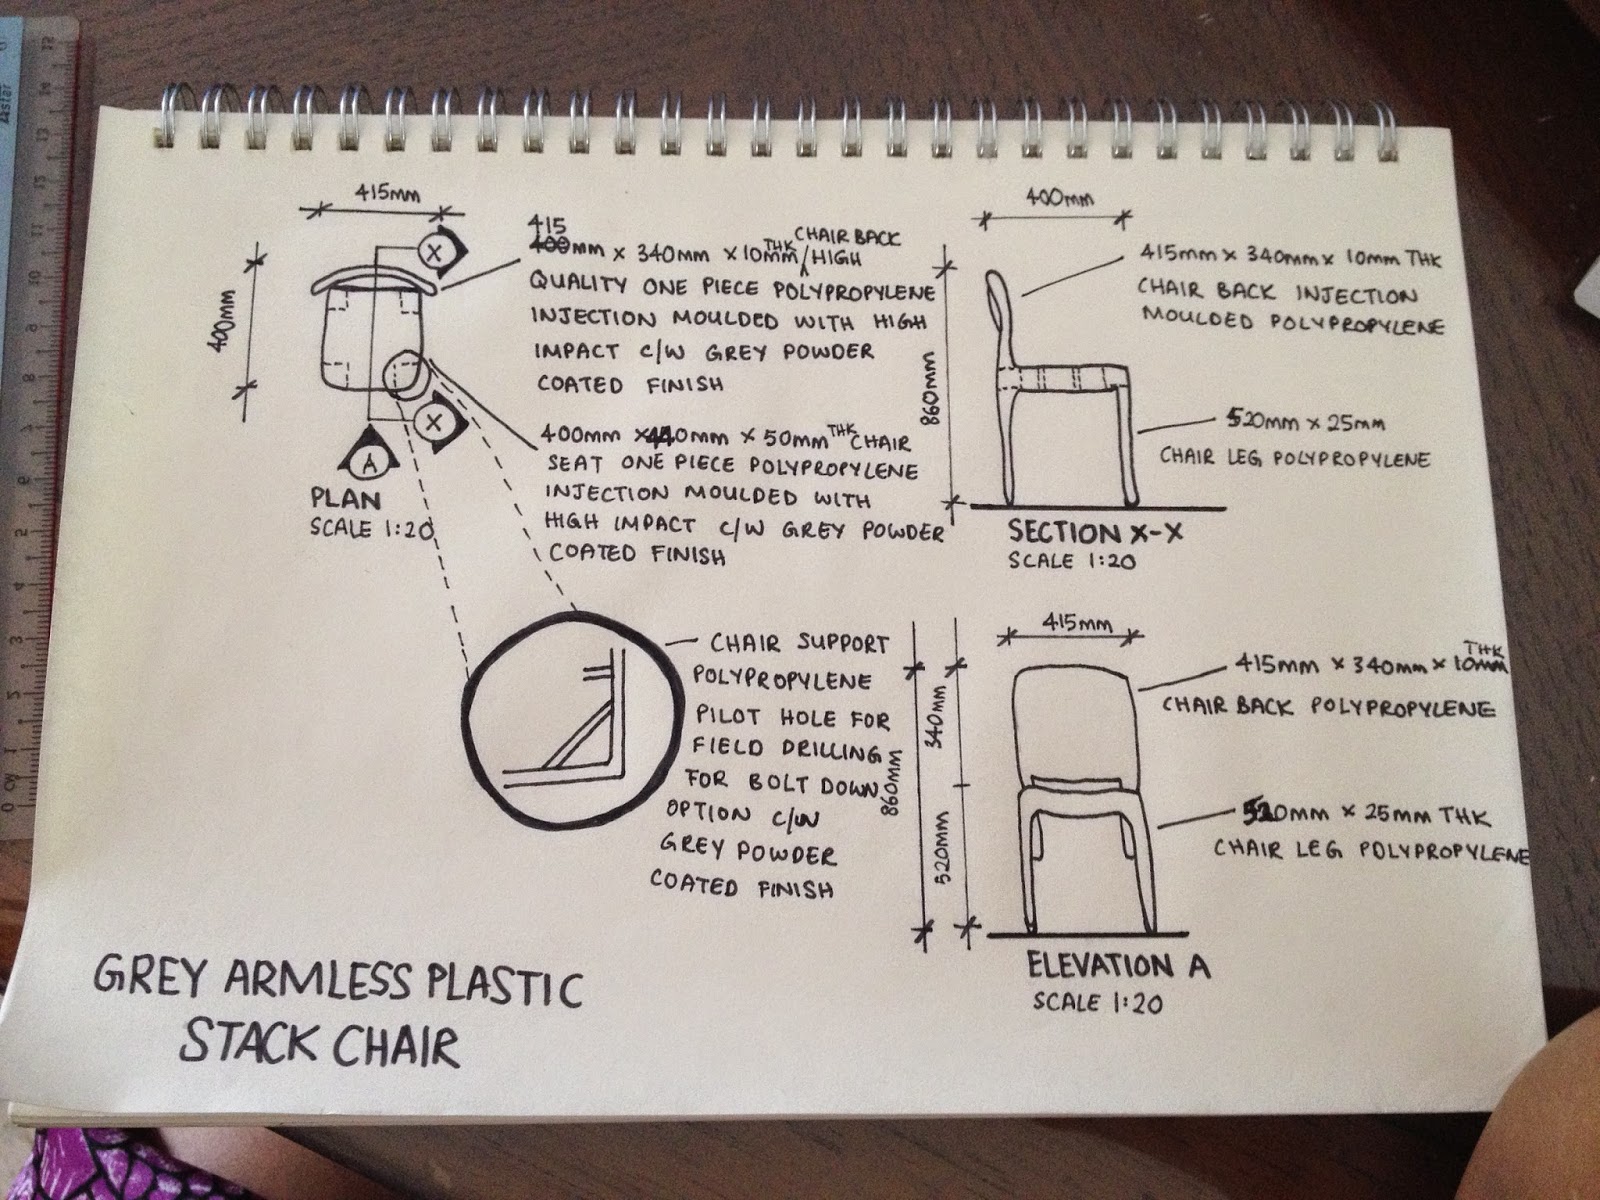 415mm
400mm
X
X
A
PLAN
SCALE 1:20
415
400mm x 340mm x 10mm THK CHAIR BACK / HIGH
QUALITY ONE PIECE POLYPROPYLENE
INJECTION MOULDED WITH HIGH
IMPACT C/W GREY POWDER
COATED FINISH
400mm x 440mm x 50mm THK CHAIR
SEAT ONE PIECE POLYPROPYLENE
INJECTION MOULDED WITH
HIGH IMPACT C/W GREY POWDER
COATED FINISH
CHAIR SUPPORT
POLYPROPYLENE
PILOT HOLE FOR
FIELD DRILLING
FOR BOLT DOWN
OPTION C/W
GREY POWDER
COATED FINISH
400mm
860mm
415mm x 340mm x 10mm THK
CHAIR BACK INJECTION
MOULDED POLYPROPYLENE
520mm x 25mm
CHAIR LEG POLYPROPYLENE
SECTION X-X
SCALE 1:20
415mm
340mm
860mm
520mm
415mm x 340mm x 10mm THK
CHAIR BACK POLYPROPYLENE
520mm x 25mm THK
CHAIR LEG POLYPROPYLENE
ELEVATION A
SCALE 1:20
GREY ARMLESS PLASTIC
STACK CHAIR